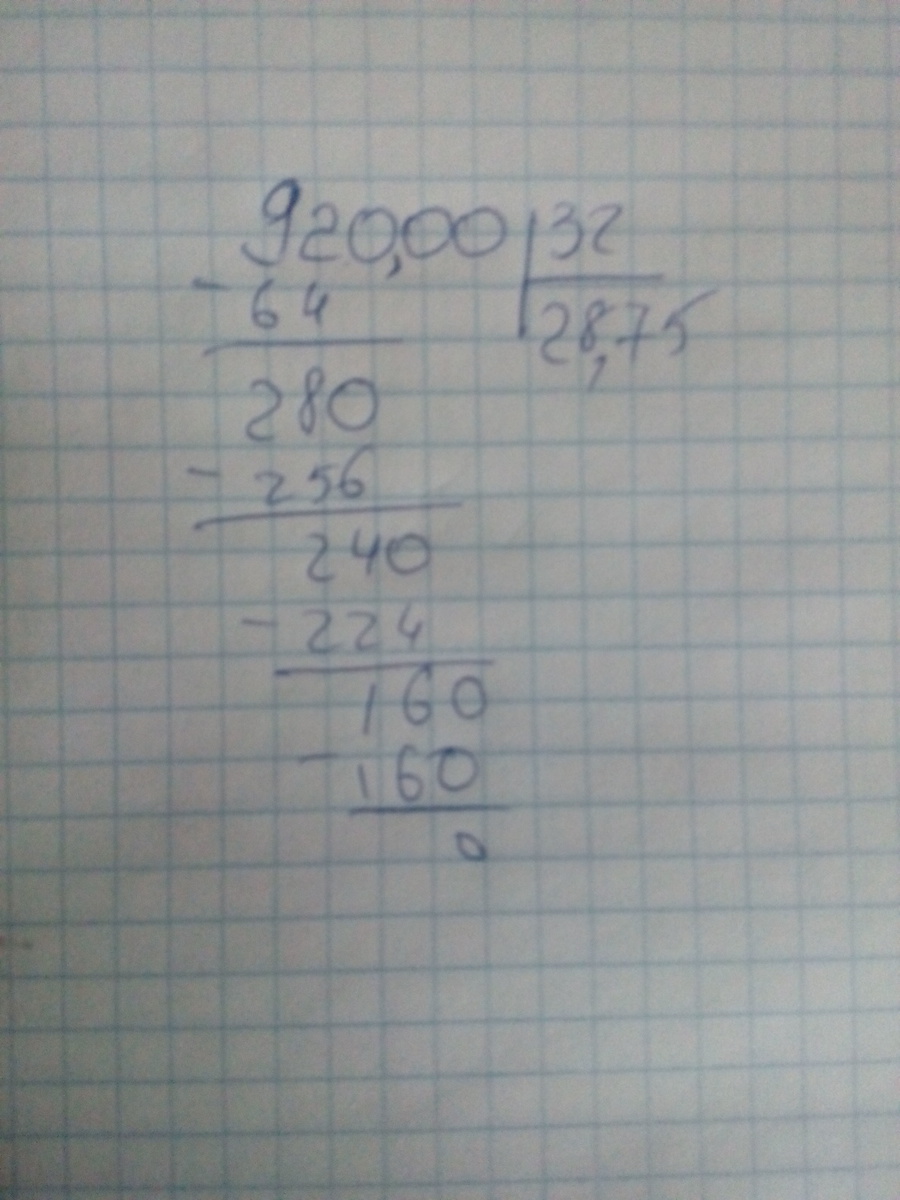 920,00 32
- 64 28,75
280
- 256
240
- 224
160
- 160
0